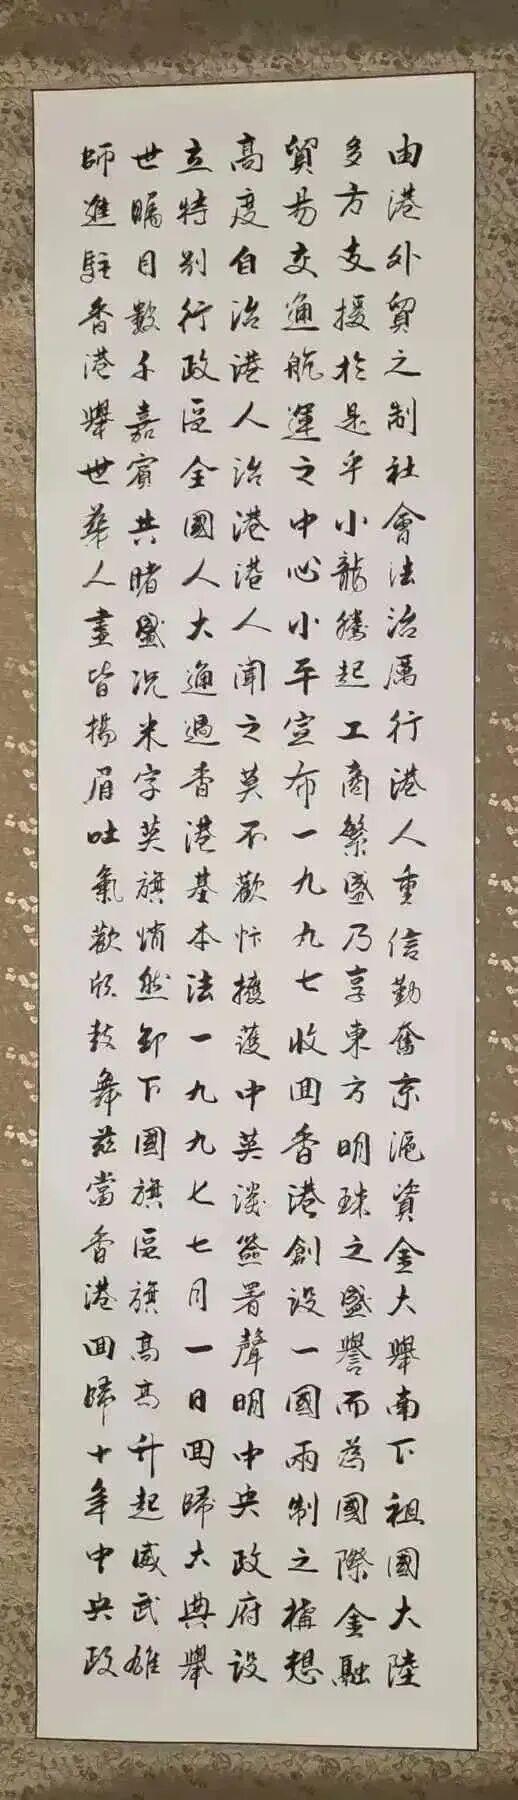 由港外貿之制社會法治厲行港人重信勤奮京滬資金大舉南下祖國大陸
多方支援於是乎小龍騰起工商繁盛乃享東方明珠之盛譽而為國際金融
貿易交通航運之中心小平宣布一九九七收回香港創設一國兩制之構想
高度自治港人治港港人聞之莫不歡忭擁護中英談簽署聲明中央政府設
立特別行政區全國人大通過香港基本法一九九七七月一日回歸大典舉
世矚目數千嘉賓共睹盛況米字英旗悄然卸下國旗區旗高高升起威武雄
師進駐香港舉世華人盡皆揚眉吐氣歡欣鼓舞茲當香港回歸十年中央政